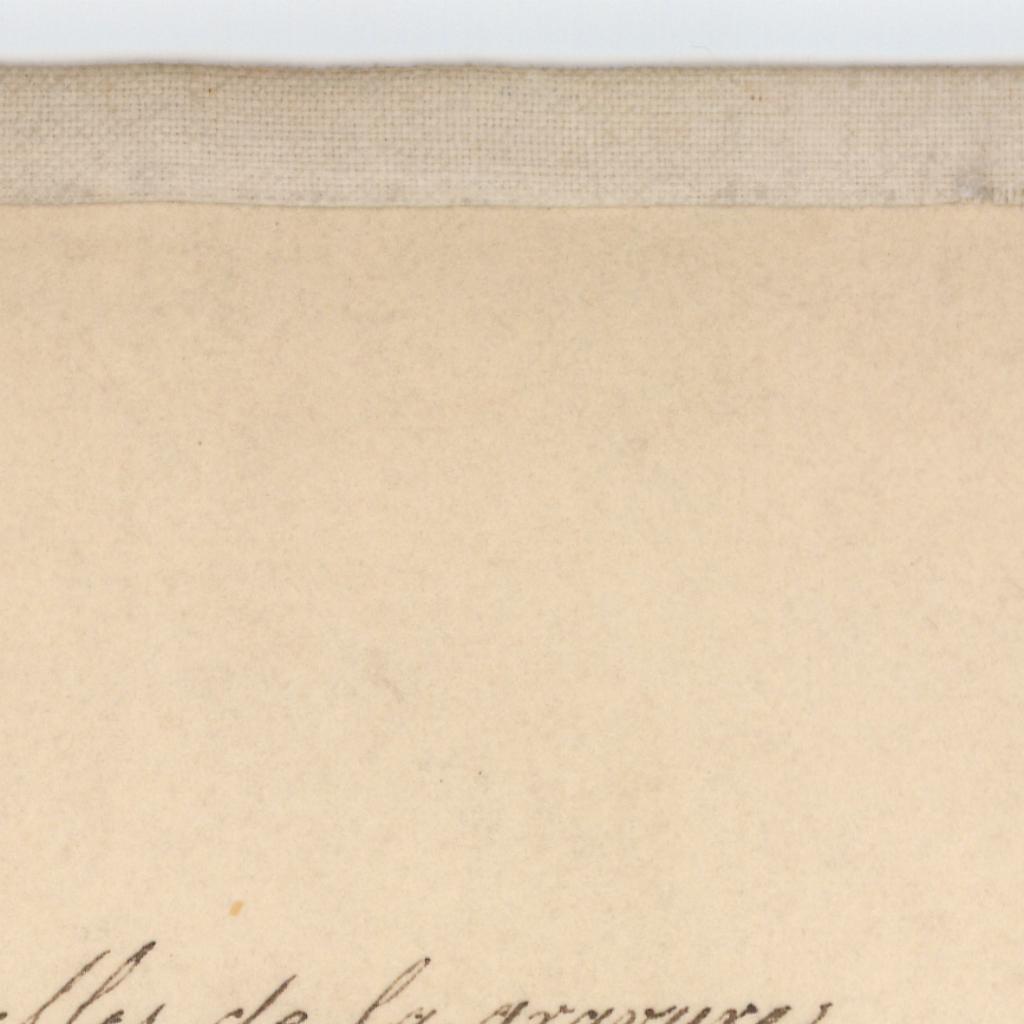 elles de la gravure